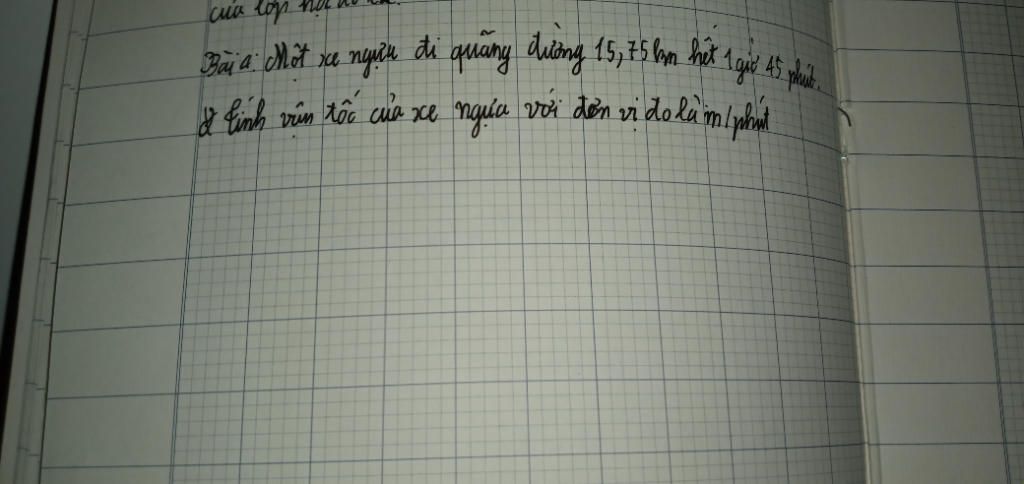 của lớp
Bài a: Một xe ngựa đi quãng đường 15,75km hết 1 giờ 45 phút.
Tính vận tốc của xe ngựa với đơn vị đo là m/phút